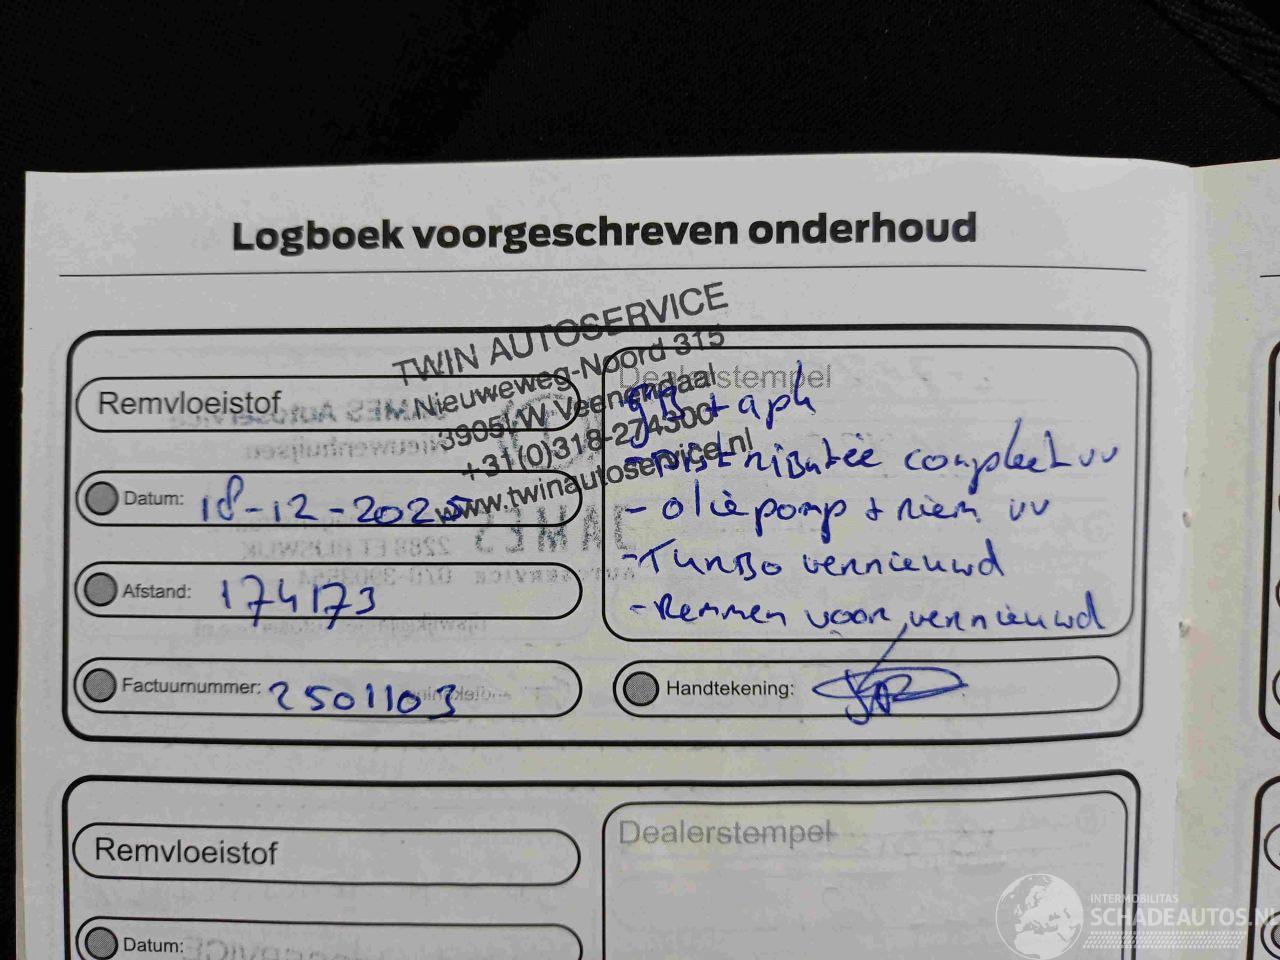 Logboek voorgeschreven onderhoud
TWIN AUTOSERVICE
Nieuweweg-Noord 315
3905LW Veenendaal
+31(0)318-274300
www.twinautoservice.nl
Remvloeistof
Datum: 18-12-2025
Afstand: 174173
Factuurnummer: 2501103
Dealerstempel
+ apk
- Distributie compleet vv
- olie pomp + riem vv
- Turbo vernieuwd
- Remmen voor vernieuwd
Handtekening:
Remvloeistof
Datum:
Dealerstempel
INTERMOBILITAS
SCHADEAUTOS.NL